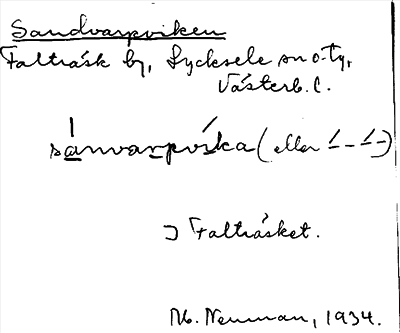 Sandvarpviken
Falträsk by, Lycksele sn o. ty,
Västerb. l.
sa̲nvarpvi̲ka (eller ́ - ́ -)
Ɔ Falträsket.
Neuman, 1934.